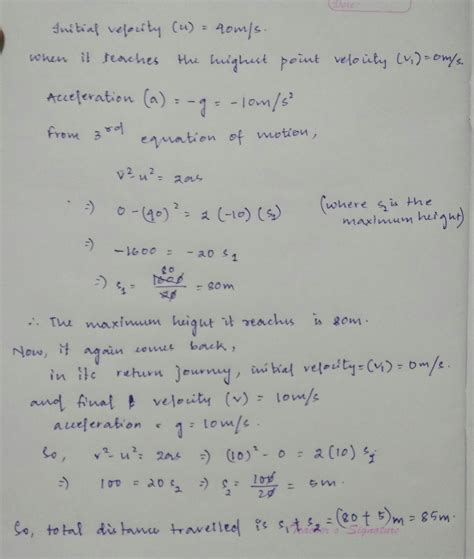 Date:
Initial velocity (u) = 40m/s.
when it reaches the highest point velocity (v₁) = 0m/s
Acceleration (a) = -g = -10m/s²
From 3rd equation of motion,
v²-u² = 2as
⇒) 0-(40)² = 2(-10)(s₁) (where s₁ is the maximum height)
⇒) -1600 = -20 s₁
⇒) s₁ = 1600/20 = 80m
80
∴ The maximum height it reaches is 80m.
Now, it again comes back,
in its return journey, initial velocity = (v₁) = 0m/s.
and final velocity (v) = 10m/s
acceleration = g = 10m/s.
So, v²-u² = 2as ⇒) (10)²-0 = 2(10) s₂
⇒) 100 = 20 s₂ ⇒) s₂ = 100/20 = 5m.
So, total distance travelled is s₁ + s₂ = (80+5)m = 85m.
Signature